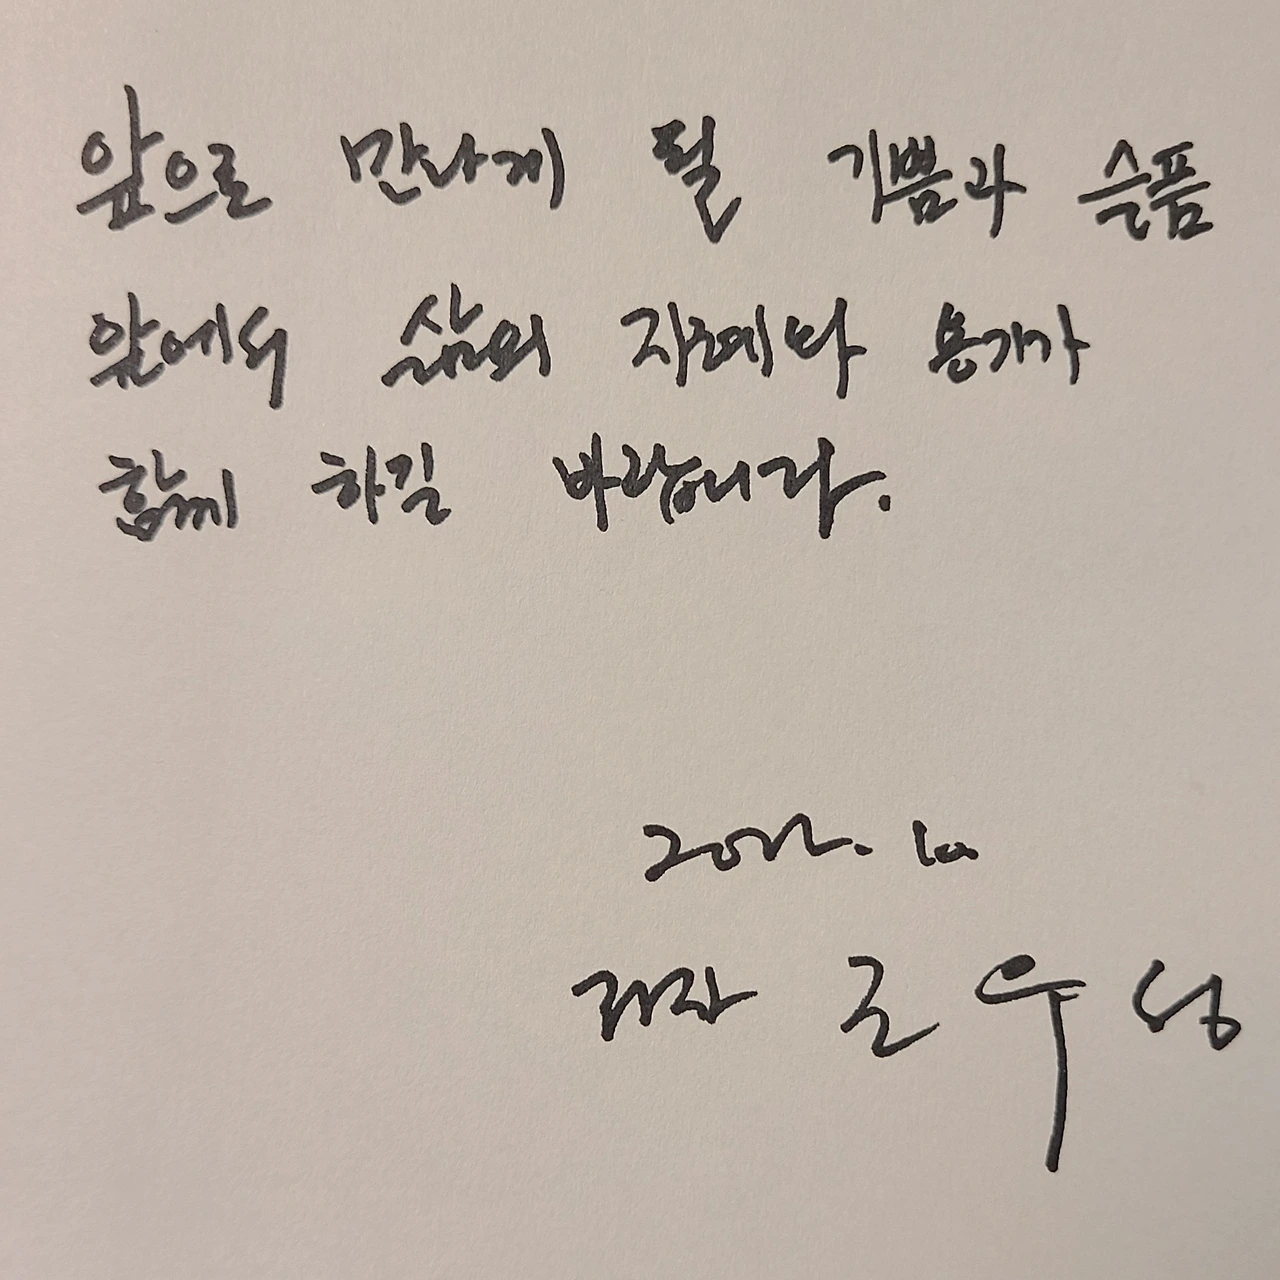 앞으로 만나게 될 기쁨과 슬픔
앞에서 삶의 지혜와 용기가
함께 하길 바랍니다.
2022. 10
저자